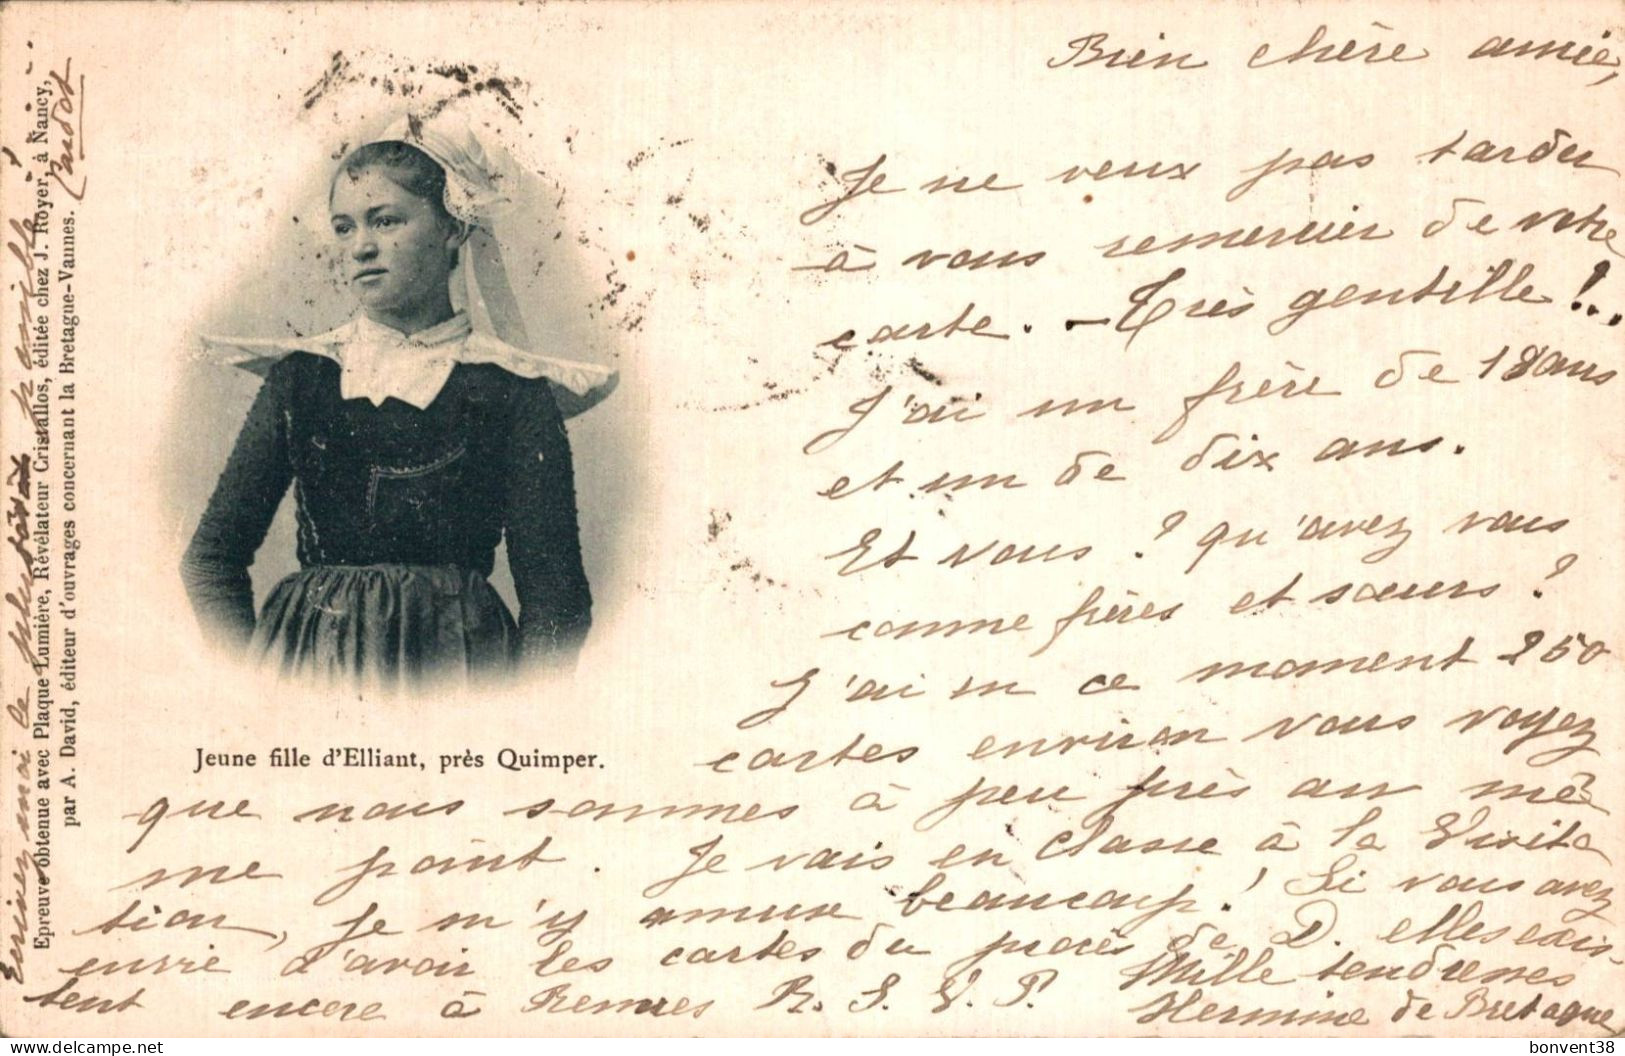 Bien chère amie,
Je ne veux pas tarder
à vous remercier de votre
carte. - Très gentille !..
J'ai un frère de 18 ans
et un de dix ans.
Et vous ? qu'avez vous
comme frères et sœurs ?
J'ai en ce moment 250
cartes environ vous voyez
que nous sommes à peu près au mê
me point. Je vais en classe à la Visita
tion, je m'y amuse beaucoup ! Si vous avez
envie d'avoir les cartes du procès de D. elles exis-
tent encore à Rennes R. S. V. P. Mille tendresses
Hermine de Bretagne
Jeune fille d'Elliant, près Quimper.
Epreuve obtenue avec Plaque Lumière, Révélateur Cristallos, éditée chez J. Royer, à Nancy,
par A. David, éditeur d'ouvrages concernant la Bretagne-Vannes.
Ecrivez moi le plus tôt possible !
bonvent38